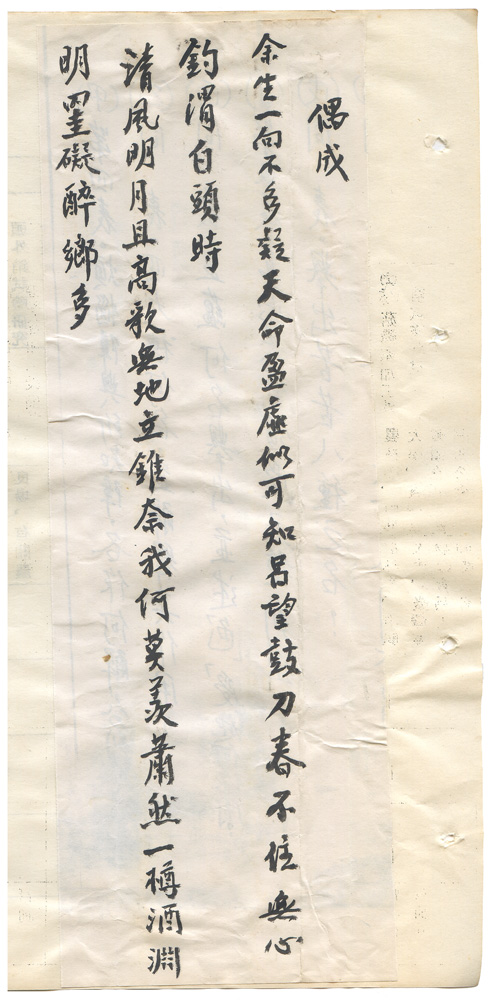 偶成
余生一向不多疑天命盈虛似可知呂望鼓刀春不住無心
釣渭白頭時
清風明月且高歌無地立錐奈我何莫羨蕭然一樽酒淵
明罣礙醉鄉多